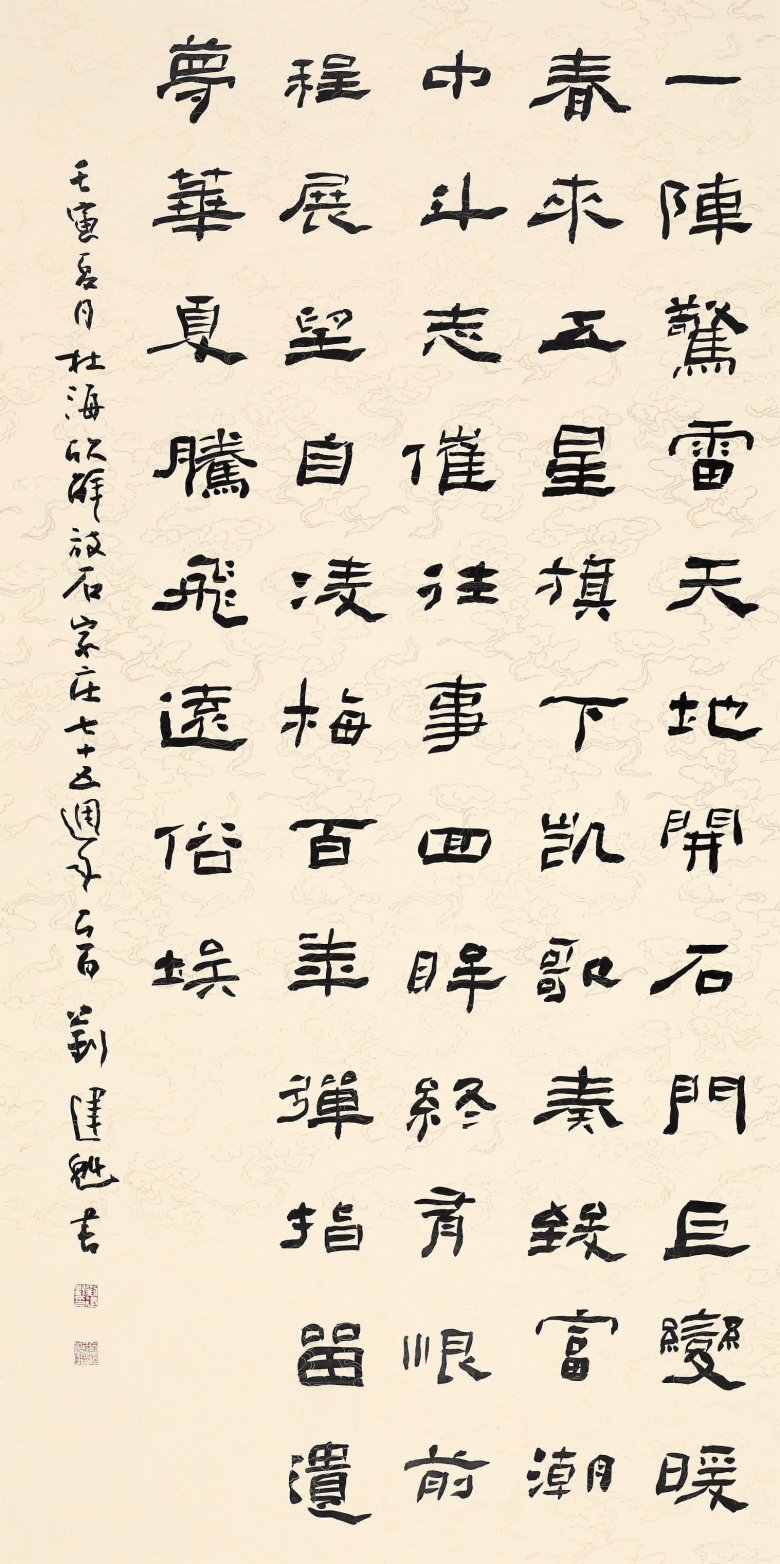 一陣驚雷天地開石門巨變暖
春來五星旗下凱歌奏致富潮
中斗志催往事回眸終有恨前
程展望自凌梅百年彈指留遺
夢華夏騰飛遠俗埃
壬寅夏月杜海欣解放石家庄七十五週年 劉建魁書